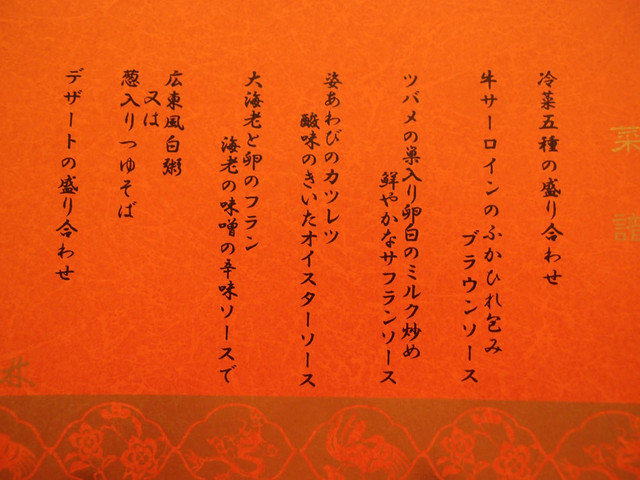 菜譜
冷菜五種の盛り合わせ
牛サーロインのふかひれ包み
ブラウンソース
ツバメの巣入り卵白のミルク炒め
鮮やかなサフランソース
姿あわびのカツレツ
酸味のきいたオイスターソース
大海老と卵のフラン
海老の味噌の辛味ソースで
広東風白粥
又は
葱入りつゆそば
デザートの盛り合わせ
林